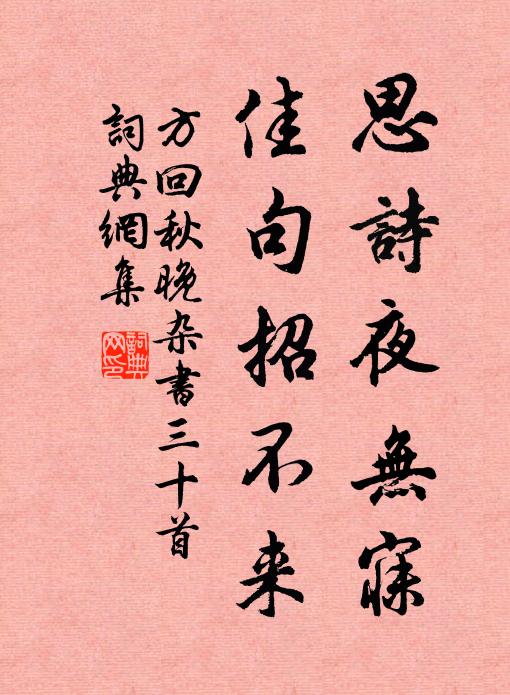 思詩夜無寐
佳句招不来
方回秋晚杂書三十首
詞典網集
詞典網印